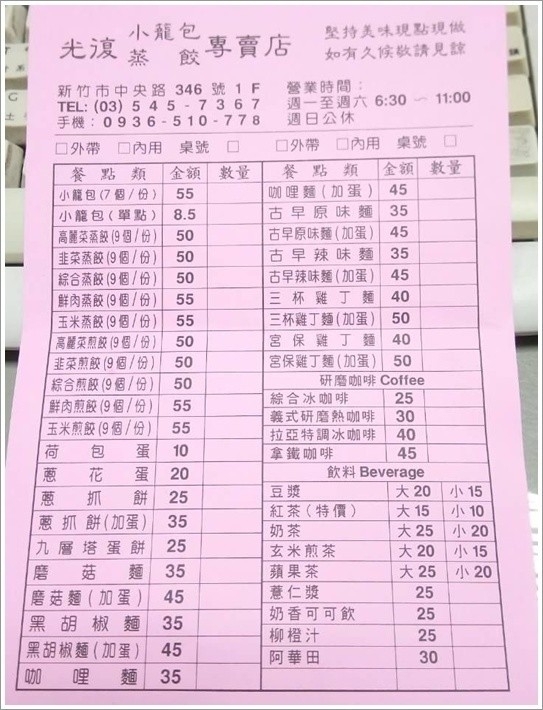 光復 小籠包 蒸餃 專賣店
堅持美味現點現做
如有久候敬請見諒
新竹市中央路 346 號 1 F
TEL: (03) 5 4 5 - 7 3 6 7
手機：0 9 3 6 - 5 1 0 - 7 7 8
營業時間：
週一至週六 6:30 ～ 11:00
週日公休
□外帶 □內用 桌號 □
□外帶 □內用 桌號 □
餐點類 金額 數量
小籠包(7個/份) 55
小籠包(單點) 8.5
高麗菜蒸餃(9個/份) 50
韭菜蒸餃(9個/份) 50
綜合蒸餃(9個/份) 50
鮮肉蒸餃(9個/份) 55
玉米蒸餃(9個/份) 55
高麗菜煎餃(9個/份) 50
韭菜煎餃(9個/份) 50
綜合煎餃(9個/份) 50
鮮肉煎餃(9個/份) 55
玉米煎餃(9個/份) 55
荷包蛋 10
蔥花蛋 20
蔥抓餅 25
蔥抓餅(加蛋) 35
九層塔蛋餅 25
磨菇麵 35
磨菇麵(加蛋) 45
黑胡椒麵 35
黑胡椒麵(加蛋) 45
咖哩麵 35
餐點類 金額 數量
咖哩麵(加蛋) 45
古早原味麵 35
古早原味麵(加蛋) 45
古早辣味麵 35
古早辣味麵(加蛋) 45
三杯雞丁麵 40
三杯雞丁麵(加蛋) 50
宮保雞丁麵 40
宮保雞丁麵(加蛋) 50
研磨咖啡 Coffee
綜合冰咖啡 25
義式研磨熱咖啡 30
拉亞特調冰咖啡 40
拿鐵咖啡 45
飲料 Beverage
豆漿 大 20 小 15
紅茶(特價) 大 15 小 10
奶茶 大 25 小 20
玄米煎茶 大 20 小 15
蘋果茶 大 25 小 20
薏仁漿 25
奶香可可飲 25
柳橙汁 25
阿華田 30